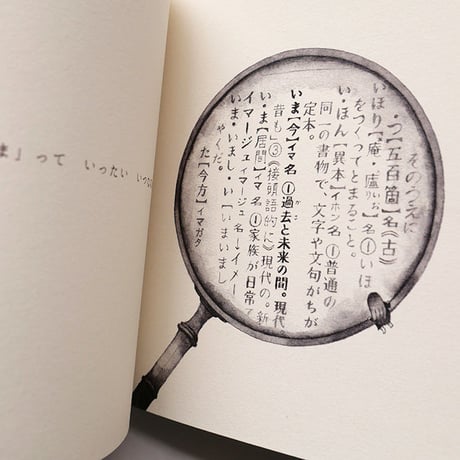 ま」って いったい いつな
そのうえに
・つ【五百箇】名《古》
いほり【庵・廬り】名①いほ
をつくってとまること。
い・ほん【異本】イホン名①普通の
同一の書物で、文字や文句がちが
定本。
いま【今】イマ名①過去と未来の間。現代。
昔も」③《接頭語的に》現代の。新
い・ま【居間】イマ名①家族が日常
イマージュィマージュ名→イメー
いま・いまし・い【いまいまし
やくだ。
た【今方】イマガタ